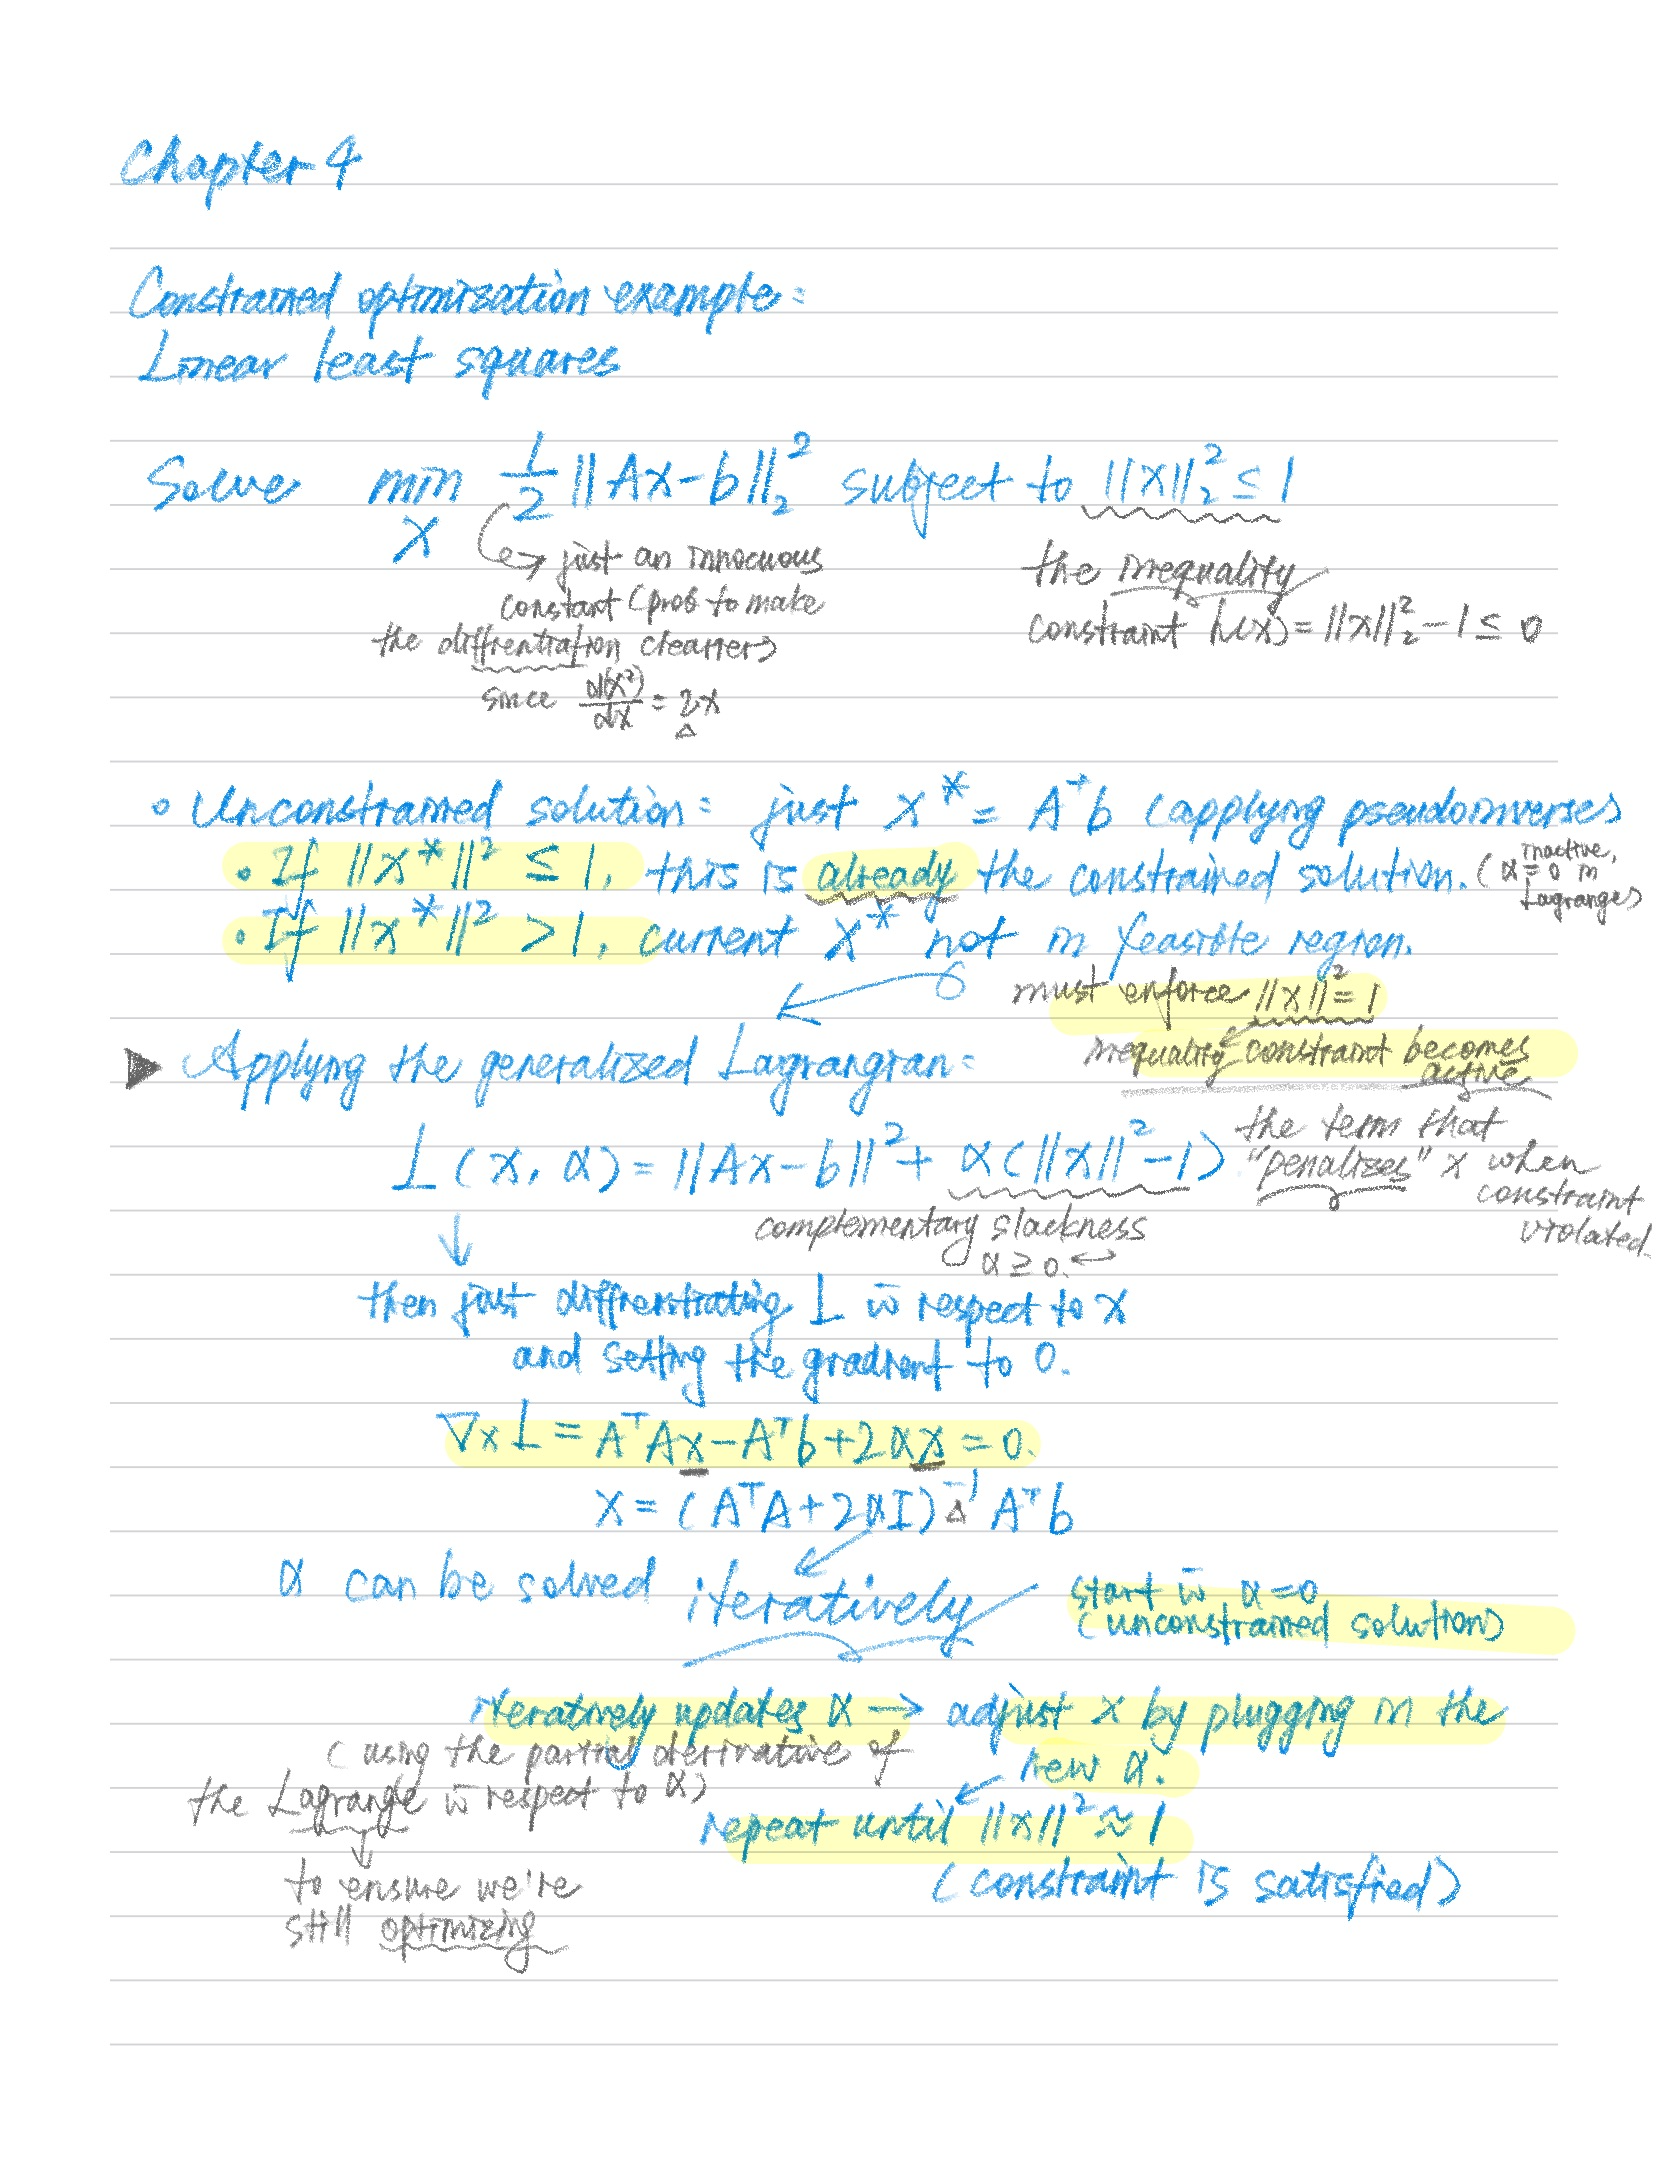 Chapter 4
Constrained optimization example:
Linear least squares
Solve min ½ ||Ax-b||₂² subject to ||x||₂² ≤ 1
x
just an innocuous
constant (prob to make
the diffrentiation clearer)
since d(x²)/dx = 2x
the inequality
constraint h(x) = ||x||₂² - 1 ≤ 0
◦ Unconstrained solution: just x* = A⁺b (applying pseudoinverse)
• If ||x*||² ≤ 1, this is already the constrained solution. (inactive, α=0 in Lagrange)
• If ||x*||² > 1, current x* not in feasible region.
must enforce ||x||² = 1
inequality constraint becomes
active
▶ Applying the generalized Lagrangian:
L(x, α) = ||Ax-b||² + α(||x||² - 1)
the term that
"penalizes" x when
constraint
violated.
complementary slackness
α ≥ 0. ↔
↓
then just diffrentiating L w̄ respect to x
and setting the gradient to 0.
∇x L = AᵀAx - Aᵀb + 2αx = 0.
x = (AᵀA + 2αI)⁻¹ Aᵀb
α can be solved iteratively
start w̄ α=0
(unconstrained solution)
iteratively updates α → adjust x by plugging in the
new α.
(using the partial derivative of
the Lagrange w̄ respect to α)
↓
to ensure we're
still optimizing
repeat until ||x||² ≈ 1
(constraint is satisfied)